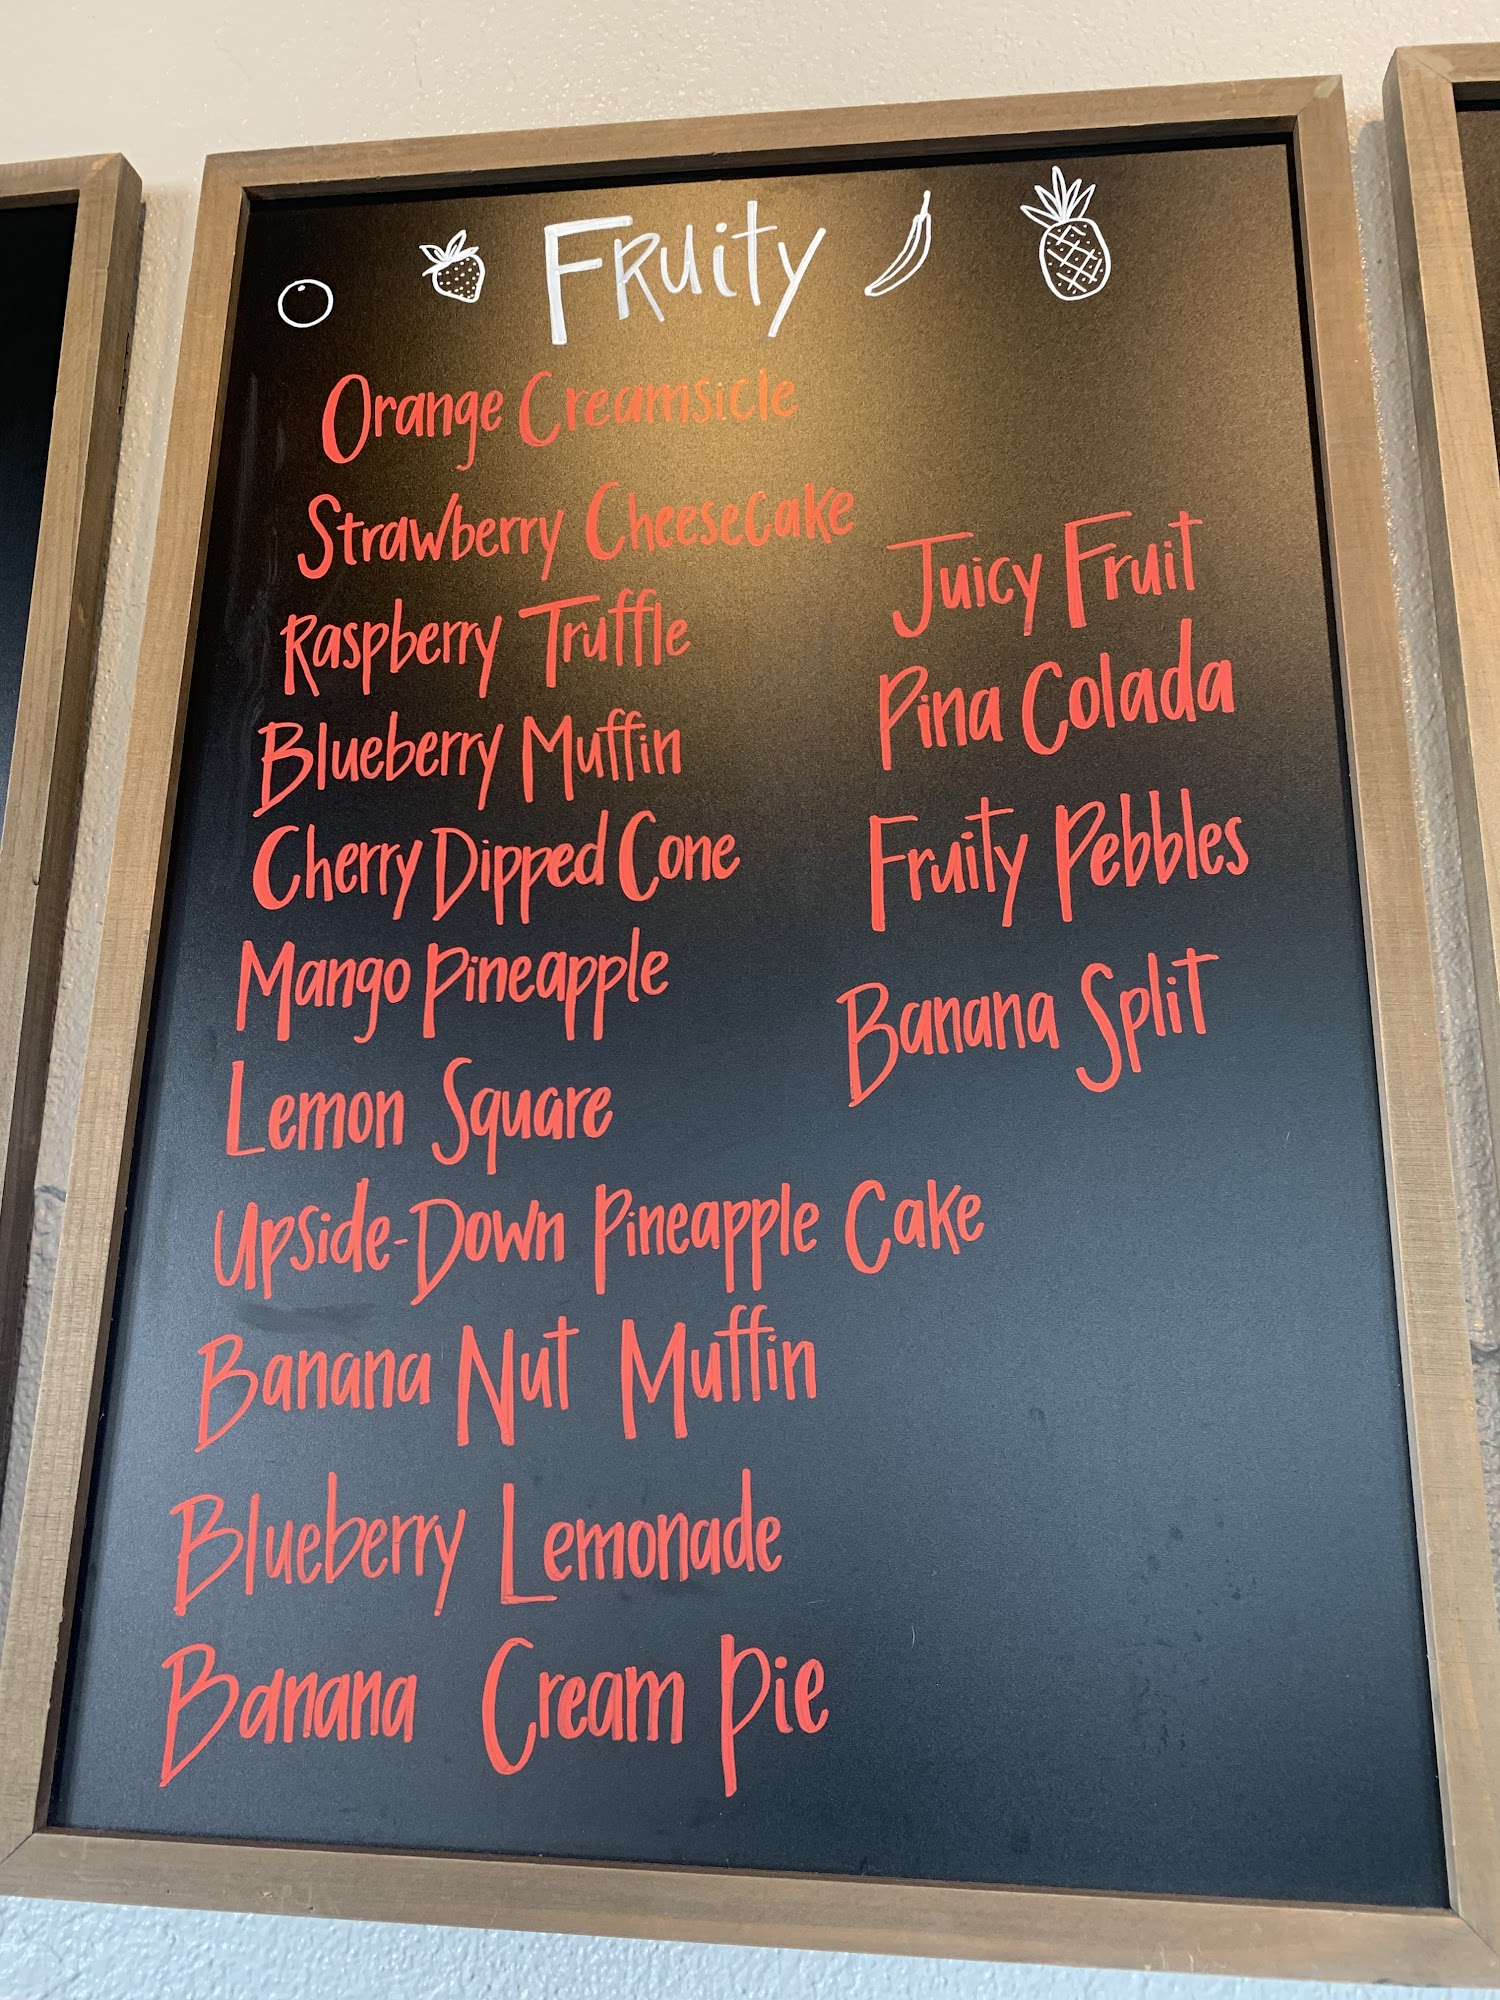 Fruity
Orange Creamsicle
Strawberry Cheesecake
Raspberry Truffle
Blueberry Muffin
Cherry Dipped Cone
Mango Pineapple
Lemon Square
Upside-Down Pineapple Cake
Banana Nut Muffin
Blueberry Lemonade
Banana Cream Pie
Juicy Fruit
Pina Colada
Fruity Pebbles
Banana Split